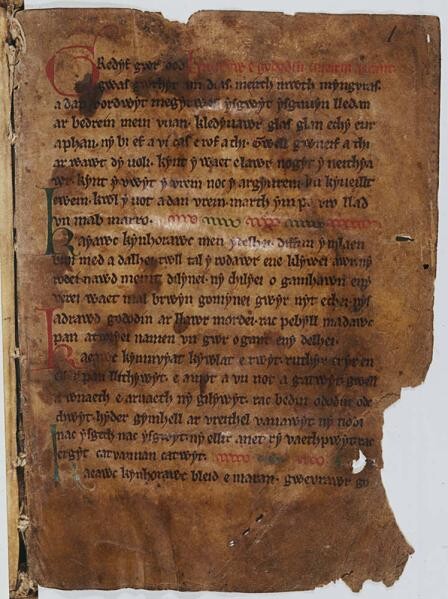 Gredyf gwr oed Hwn yw e gododin. aneirin ae cant.
gwas gwrhyt am dias. meirch mwth myngvras.
a dan vordwyt megyrwas ysgwyt ysgauyn lledan
ar bedrein mein vuan. kledyuawr glas glan ethy eur
aphan. ny bi ef a vi cas e rof a thi. gwell gwneif a thi
ar wawt dy uoli. kynt y waet elawr nogyt y neithya
wr. kynt y vwyt y vrein noc y argyurein. ku kyueillt
ewein. kwl y uot a dan vrein. marth ym pa vro llad
un mab marro.
Kayawc kynhorawc men y delhei. diffun ymlaen
bun med a dalhei. twll tal y rodawr ene klywei awr. ny
rodei nawd meint dilynei. ny chilyei o gamhawn eny
verei waet mal brwyn gomynei gwyr nyt echei. nys
adrawd gododin ar llawr mordei. rac pebyll madawc
pan atcoryei namen un gwr o gant eny delhei.
Kaeawc kynnivyat kywlat e rwyt. ruthyr eryr en
ebyr pan llithywyt. e amot a vu not a gatwyt. gwell
a wnaeth e aruaeth ny gilywyt. rac bedin ododin ode
chwyt. hyder gymhell ar vreithel vanawyt. ny nodi
nac ysgeth nac ysgwyt. ny ellir anet ry vaethpwyt rac
ergyt catvannan catwyt.
Kaeawc kynhorawc bleid e maran. gwevrawr go